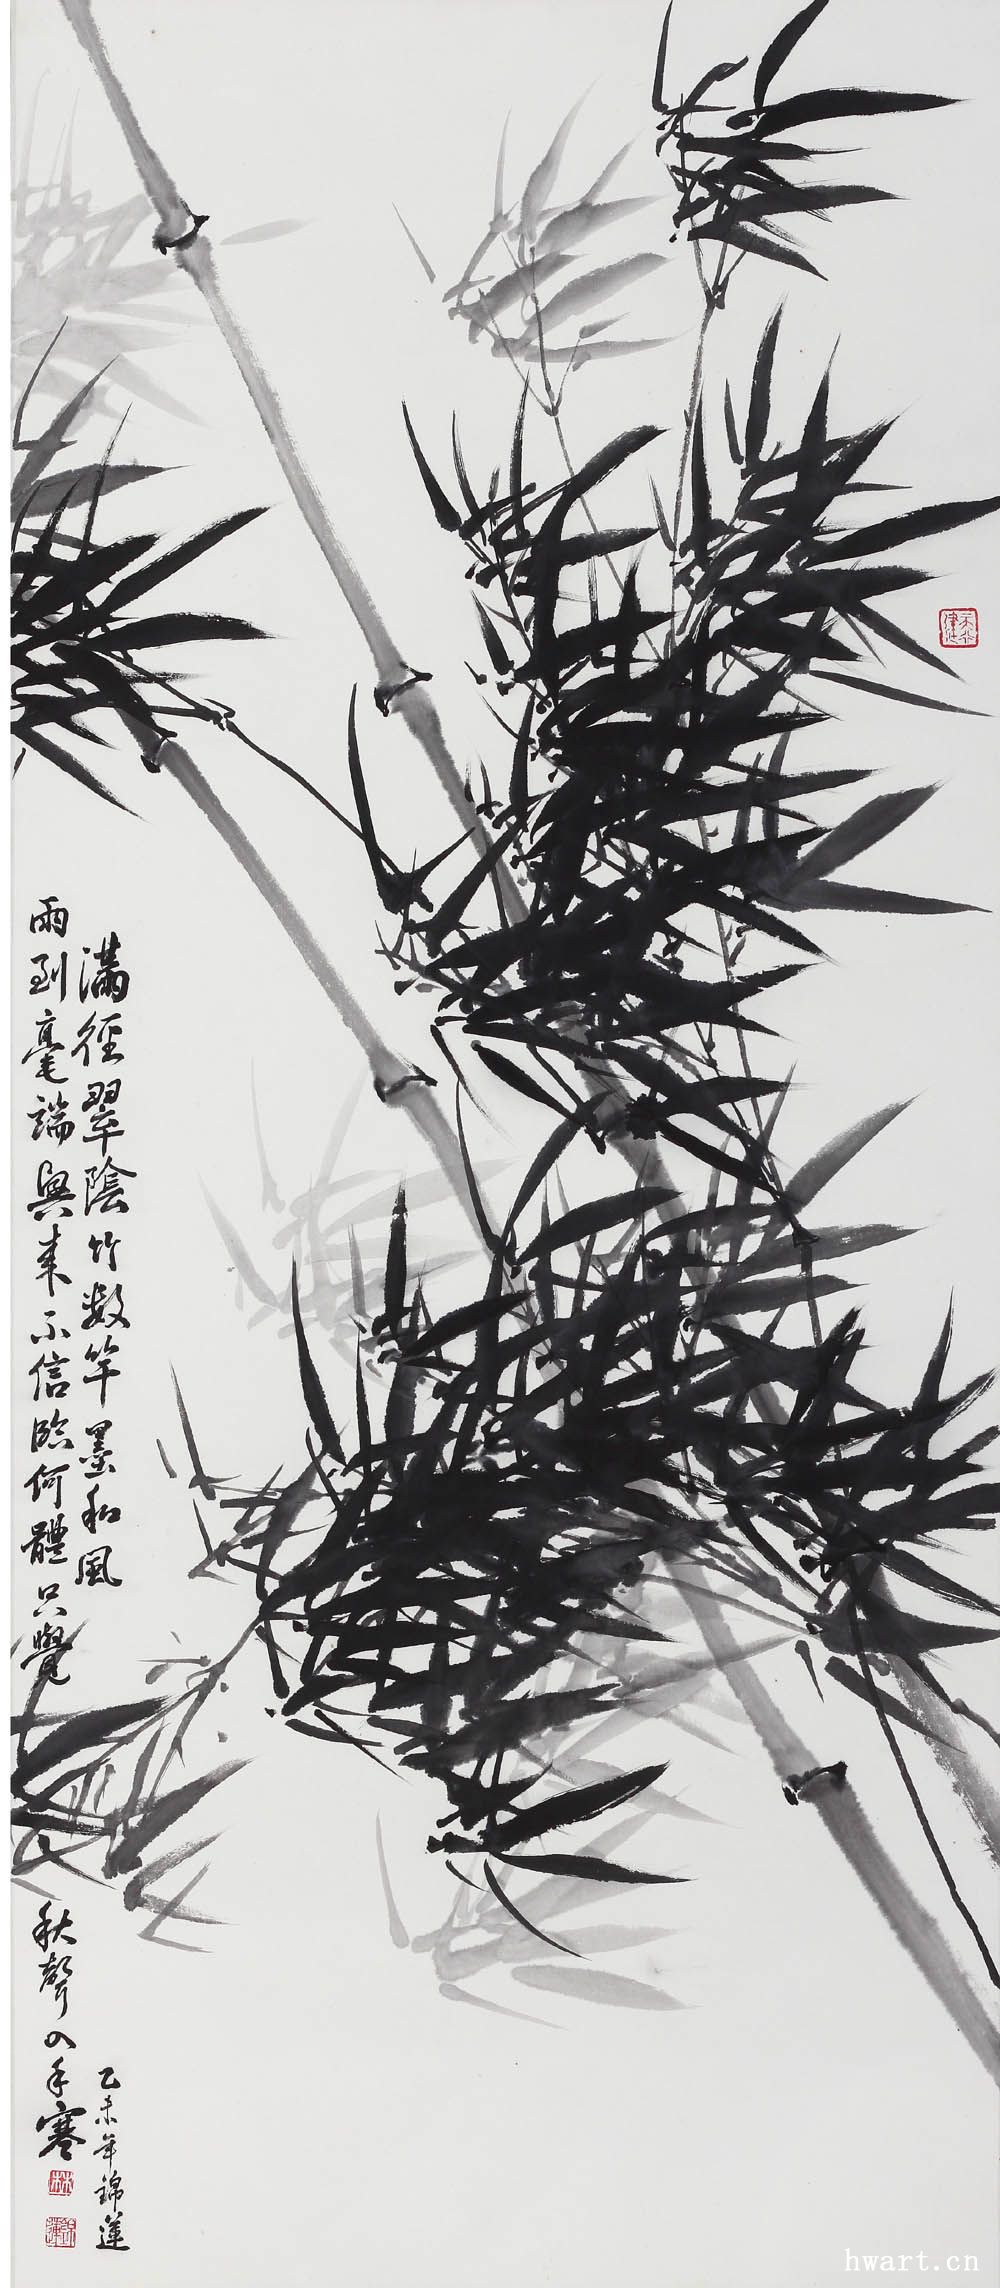 滿徑翠陰竹數竿墨和風
雨到毫端興來不信臨何體只覺
秋聲入手寒
乙未年錦蓮
林
錦蓮
hwart.cn